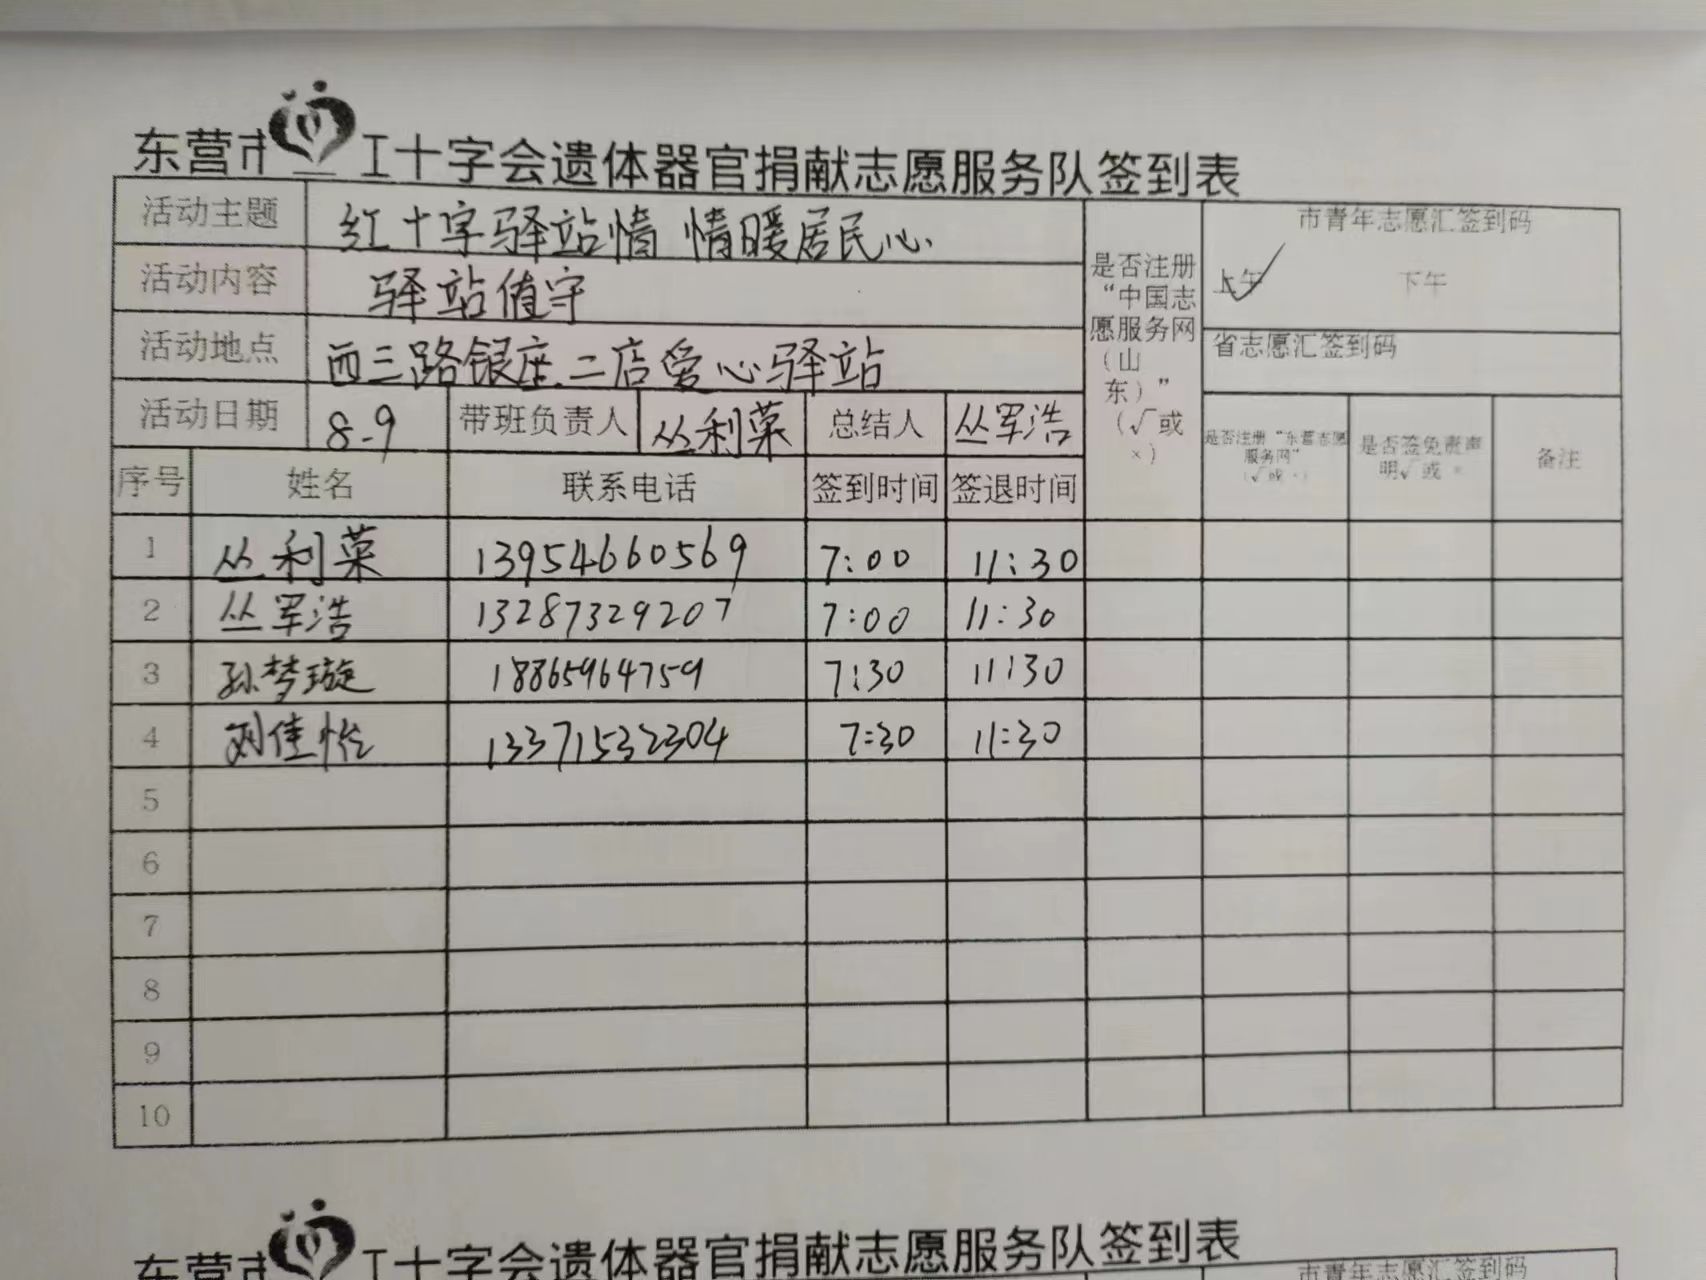 东营市红十字会遗体器官捐献志愿服务队签到表
活动主题 红十字驿站情 情暖居民心
活动内容 驿站值守
活动地点 西三路银座二店爱心驿站
活动日期 8-9 带班负责人 丛利菜 总结人 丛军浩
是否注册“中国志愿服务网（山东）”（√或×）
市青年志愿汇签到码
上午 下午
省志愿汇签到码
是否注册“东营志愿服务网”（√或×） 是否签免责声明√或× 备注
序号 姓名 联系电话 签到时间 签退时间
1 丛利菜 13954660569 7:00 11:30
2 丛军浩 13287329207 7:00 11:30
3 孙梦璇 18865964759 7:30 11:30
4 刘佳怡 13371532304 7:30 11:30
5
6
7
8
9
10
东营市红十字会遗体器官捐献志愿服务队签到表
市青年志愿汇签到码